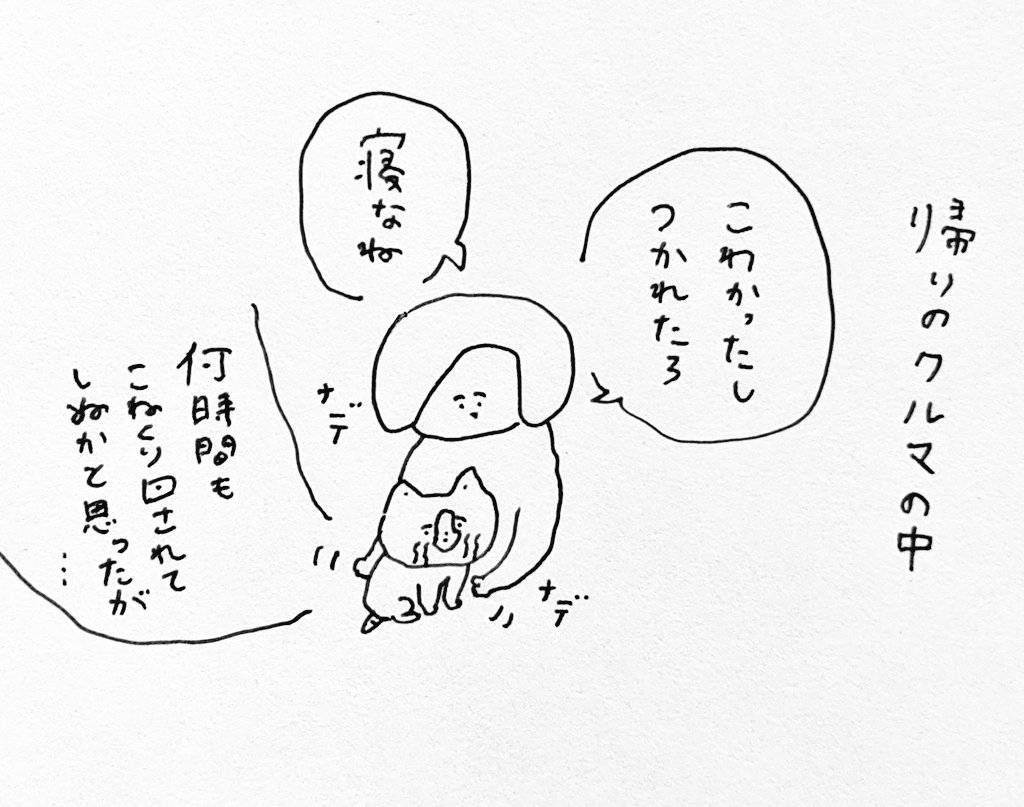 帰りのクルマの中
こわかったし
つかれたろ
寝なね
ナデ
ナデ
何時間も
こねくり回されて
しぬかと思ったが
…